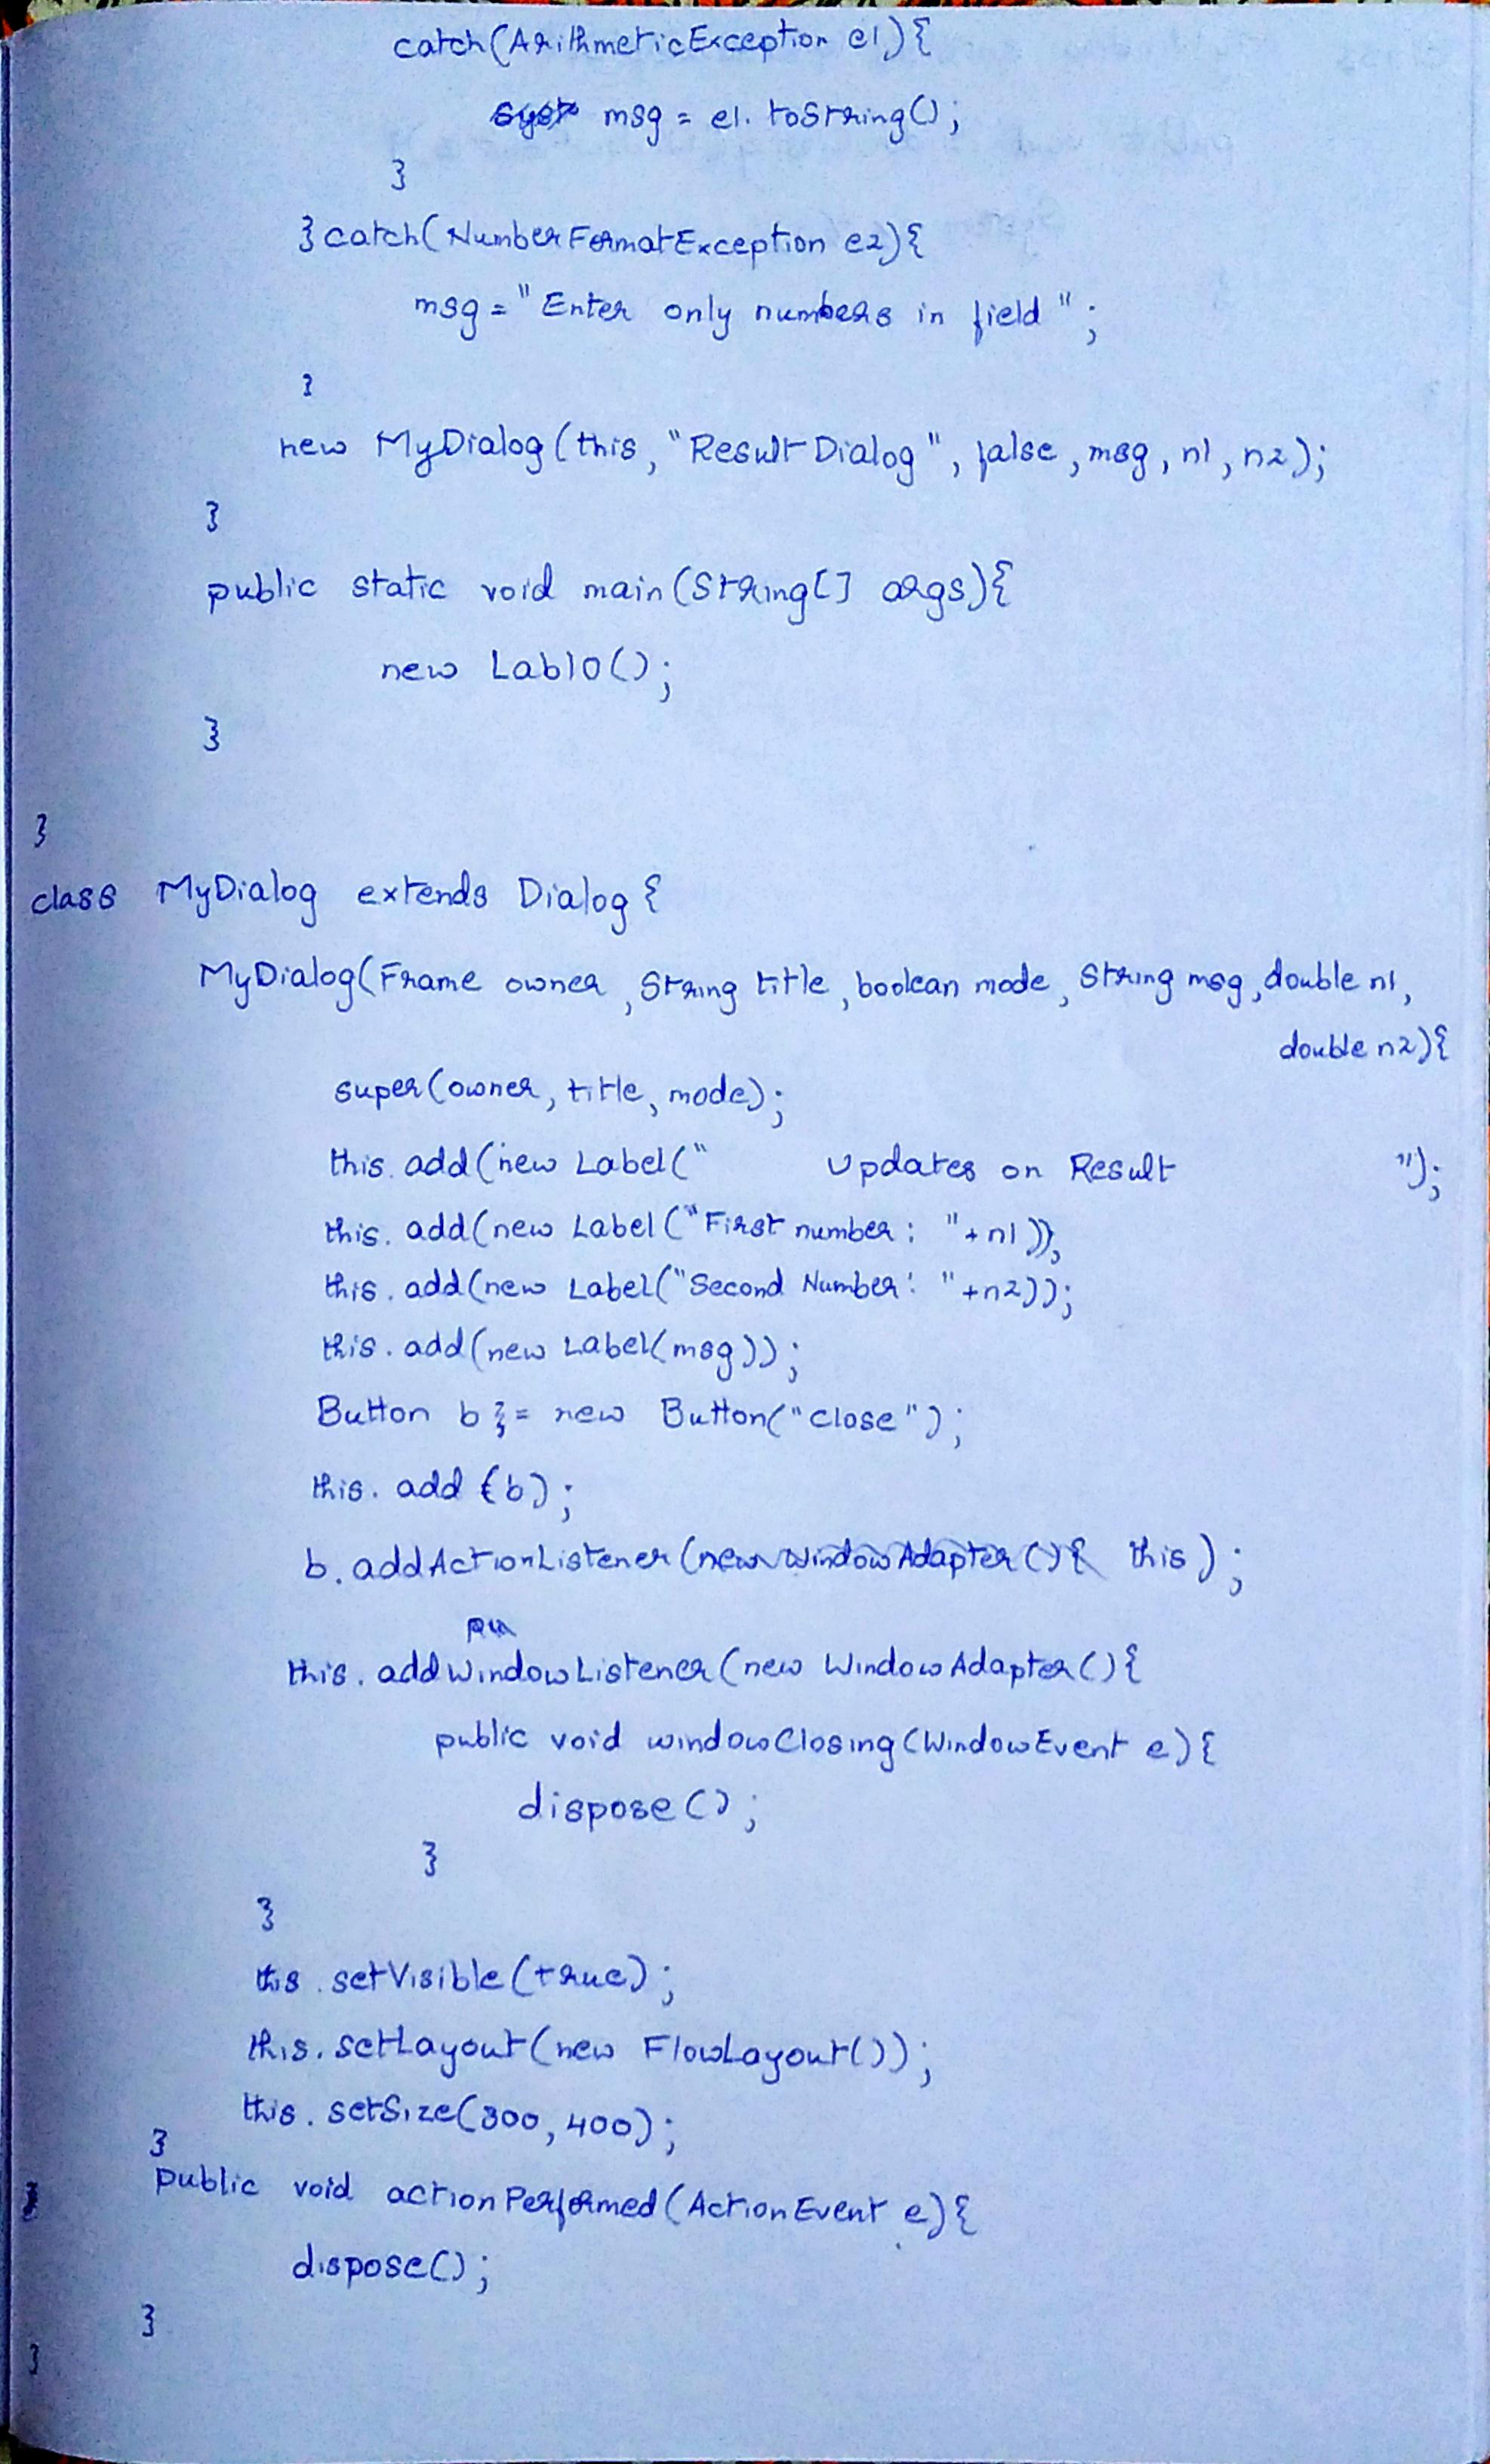 catch(ArithmeticException e1){
msg = e1.toString();
}
}catch(NumberFormatException e2){
msg = "Enter only numbers in field";
}
new MyDialog(this, "Result Dialog", false, msg, n1, n2);
}
public static void main(String[] args){
new Lab10();
}
}
class MyDialog extends Dialog{
MyDialog(Frame owner, String title, boolean mode, String msg, double n1,
double n2){
super(owner, title, mode);
this.add(new Label(" Updates on Result ");
this.add(new Label("First number: "+n1));
this.add(new Label("Second Number: "+n2));
this.add(new Label(msg));
Button b = new Button("close");
this.add(b);
b.addActionListener(this);
this.addWindowListener(new WindowAdapter(){
public void windowClosing(WindowEvent e){
dispose();
}
}
this.setVisible(true);
this.setLayout(new FlowLayout());
this.setSize(300,400);
}
public void actionPerformed(ActionEvent e){
dispose();
}
}